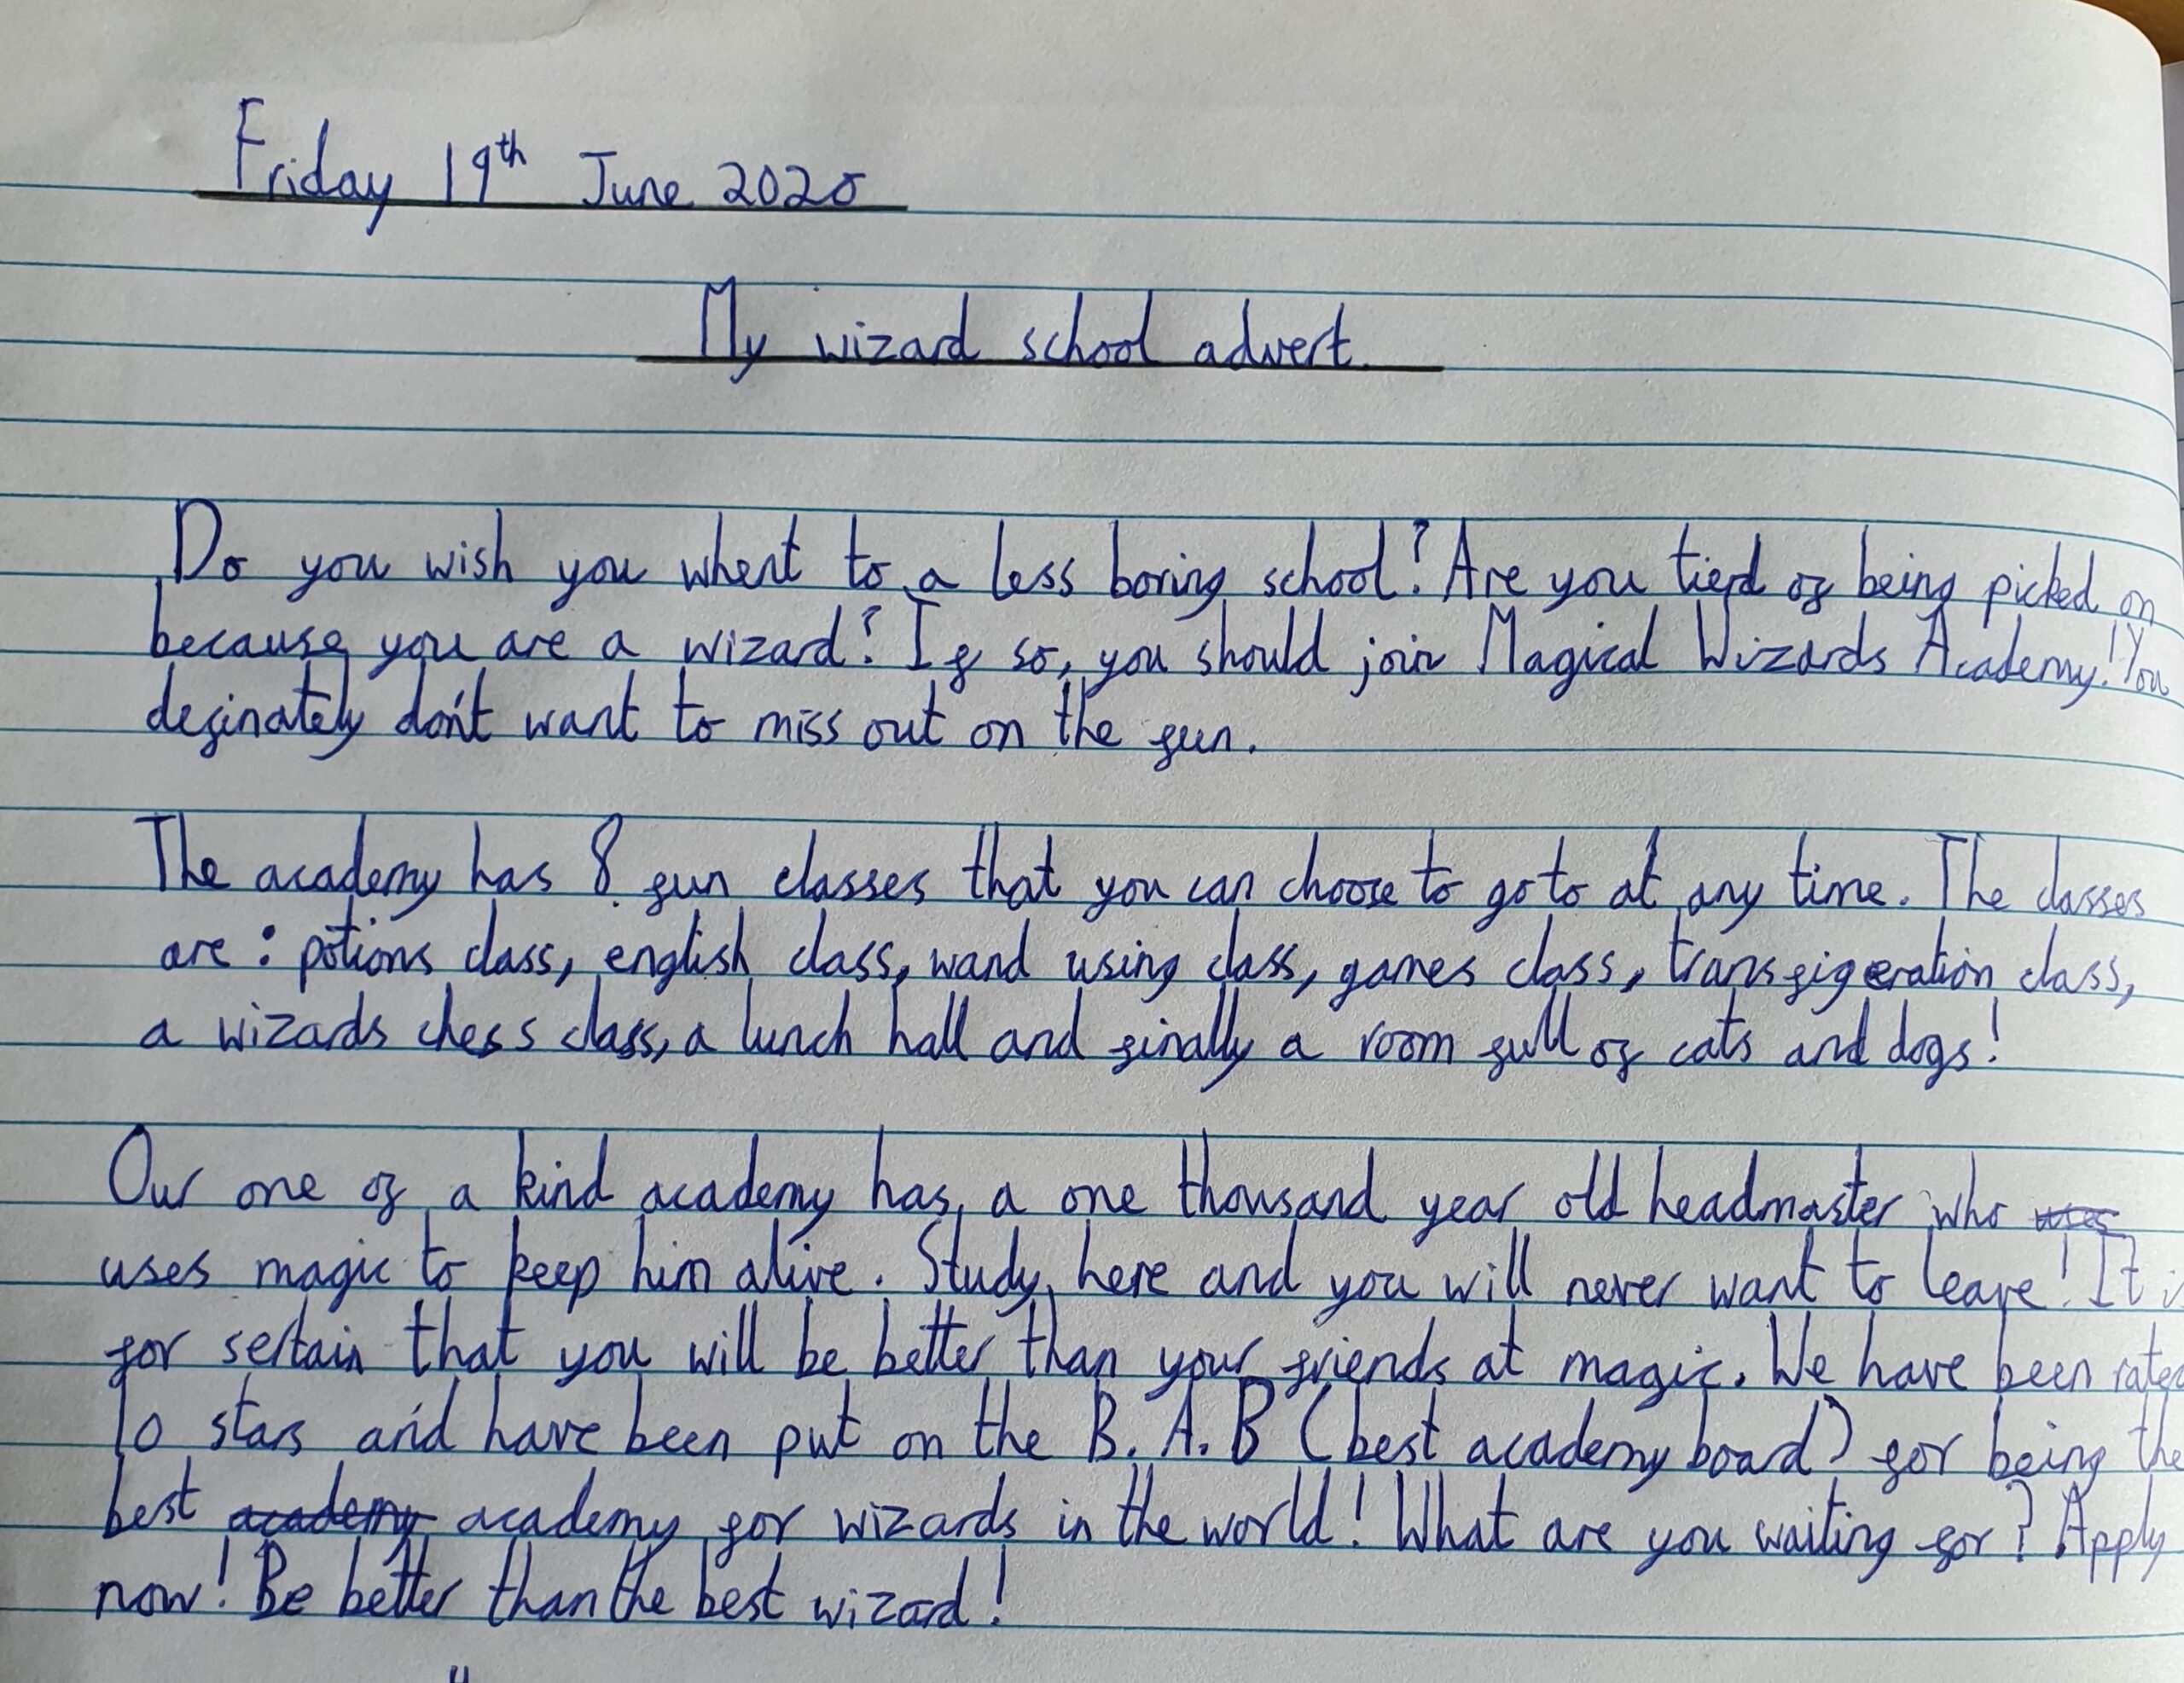 Friday 19th June 2020
My wizard school advert.
Do you wish you whent to a less boring school? Are you tierd of being picked on
because you are a wizard? If so, you should join Magical Wizards Academy! You
definately don't want to miss out on the fun.
The academy has 8 fun classes that you can choose to go to at any time. The classes
are: potions class, english class, wand using class, games class, transfigeration class,
a wizards chess class, a lunch hall and finally a room full of cats and dogs!
Our one of a kind academy has a one thousand year old headmaster who
uses magic to keep him alive. Study here and you will never want to leave! It
for sertain that you will be better than your friends at magic. We have been rated
10 stars and have been put on the B.A.B (best academy board) for being the
best academy academy for wizards in the world! What are you waiting for? Apply
now! Be better than the best wizard!